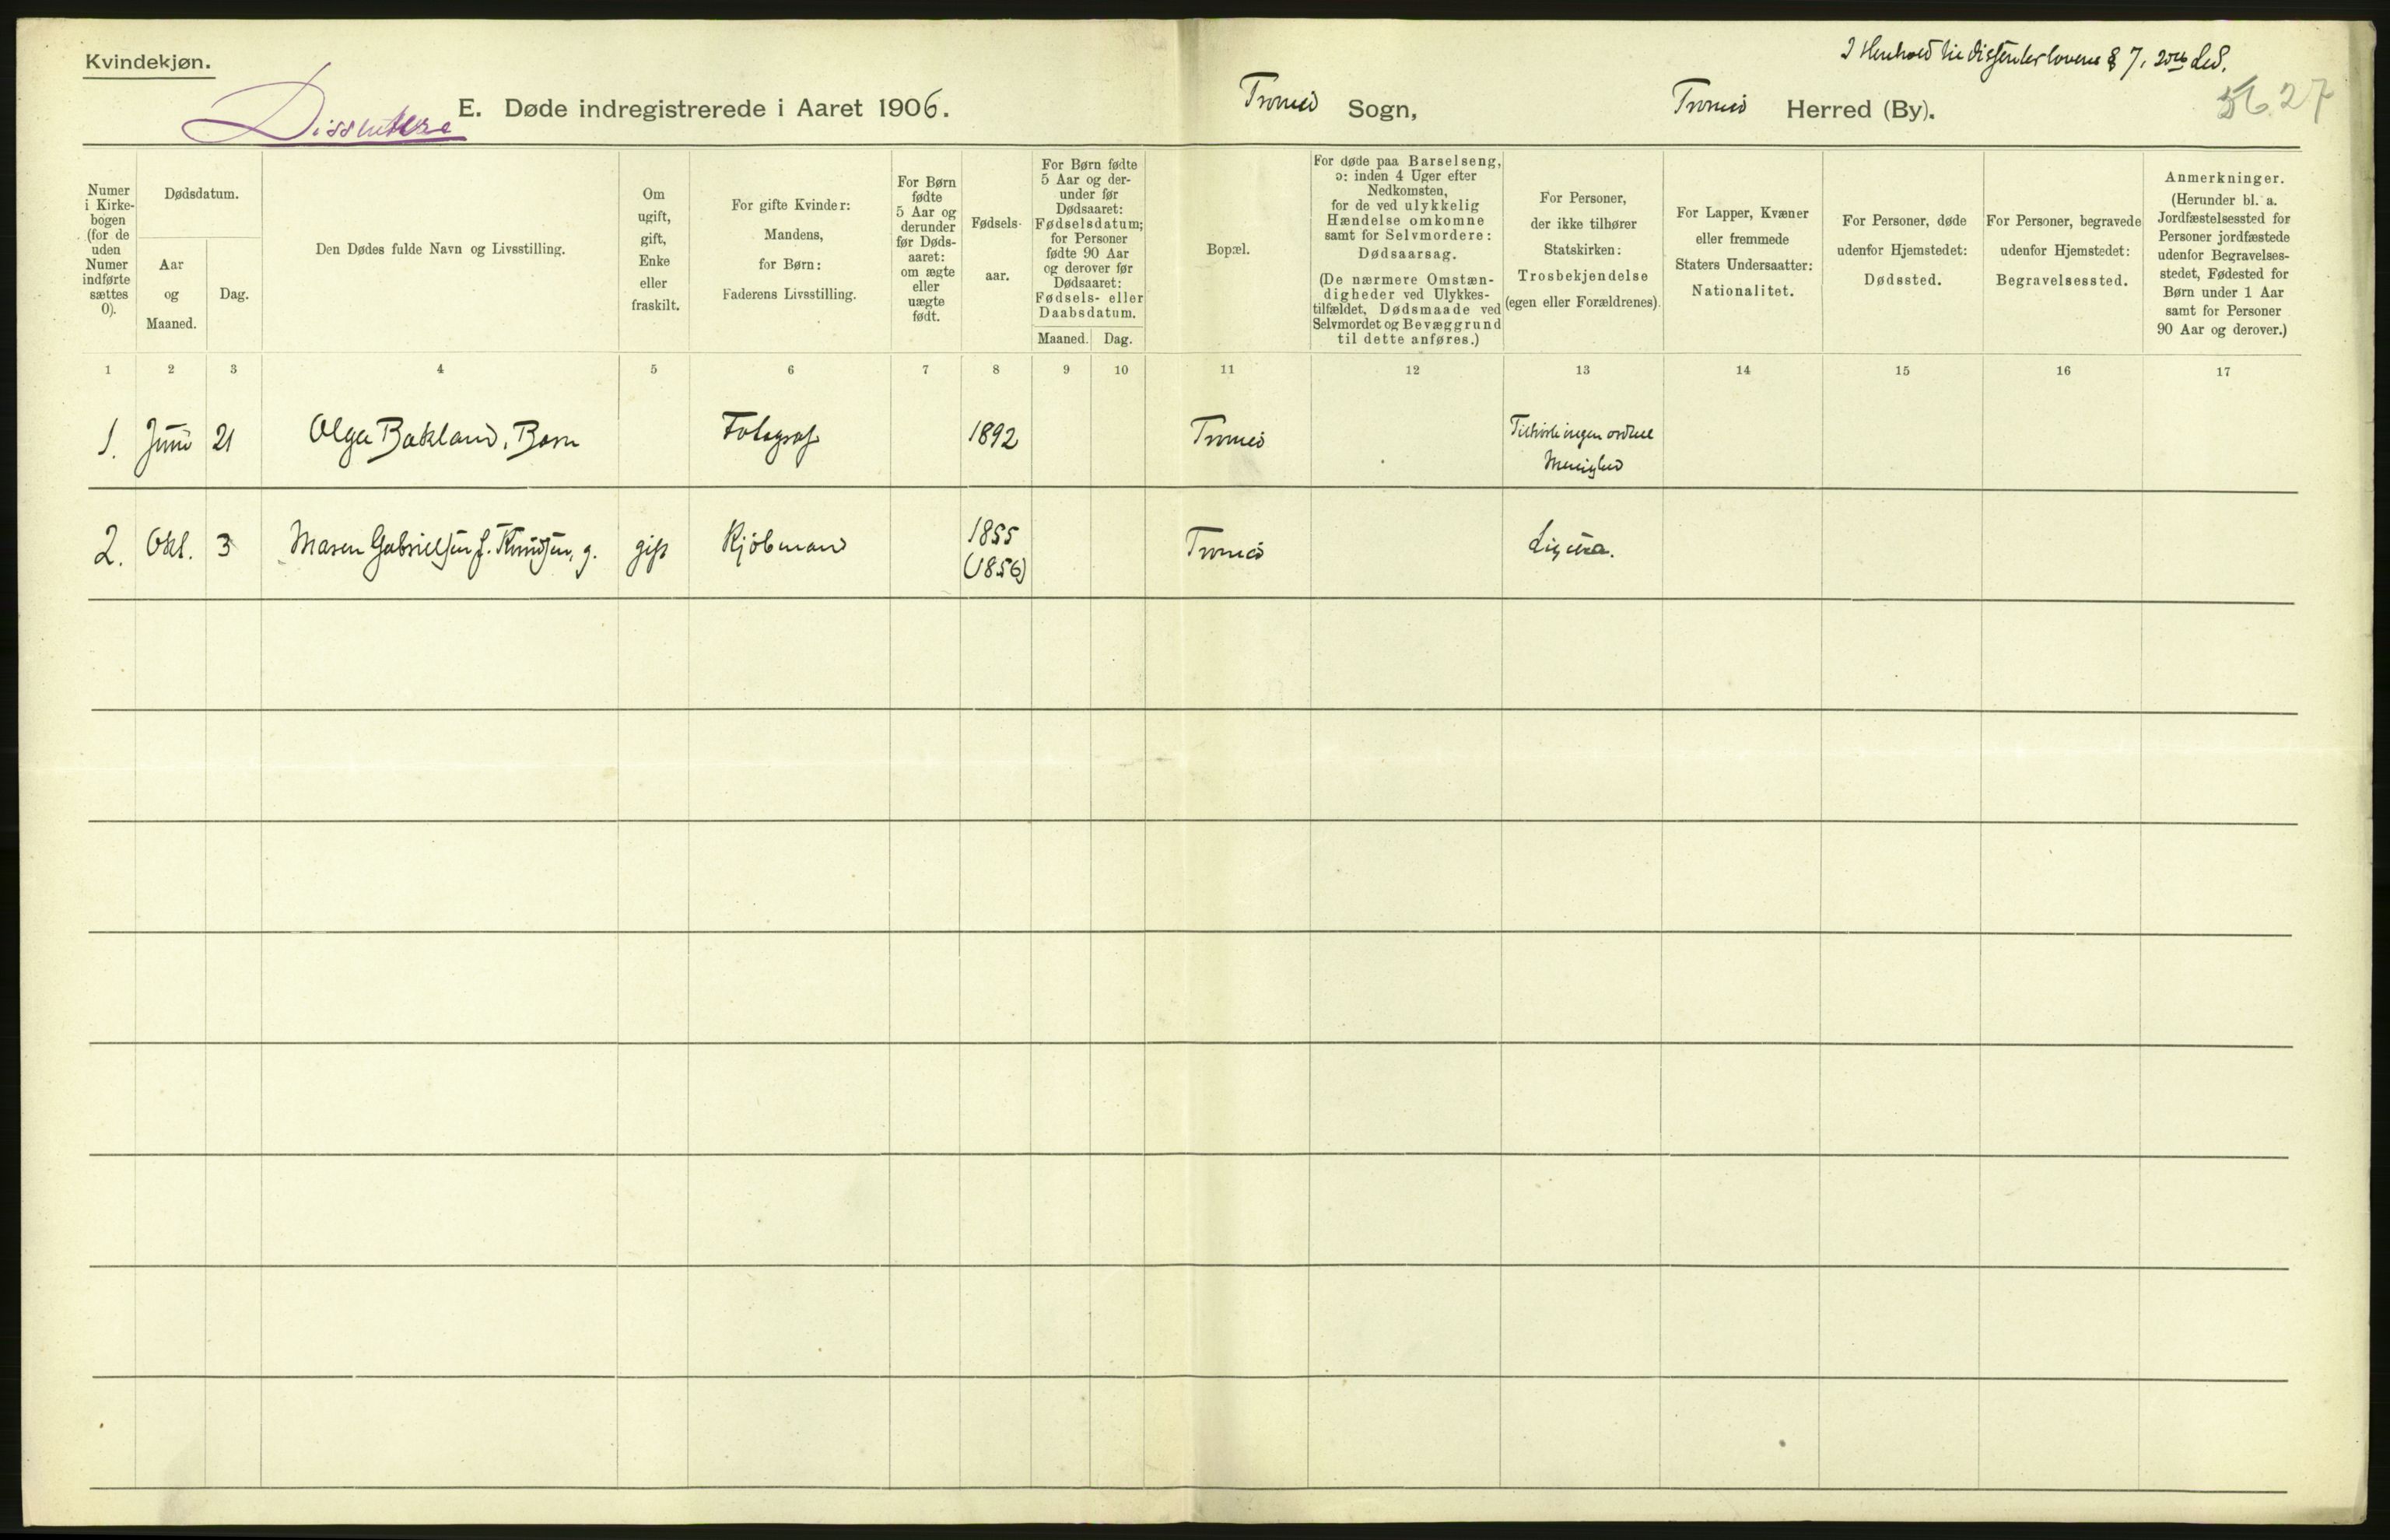 Kvindekjøn.
I Henhold til Dissenterlovens § 7, 2det Led.
Dissentere
E. Døde indregistrerede i Aaret 1906.
Tromsö Sogn,
Tromsö Herred (By).
27
Numer i Kirke-bogen (for de uden Numer indførte sættes 0).
Dødsdatum.
Aar og Maaned.
Dag.
Den Dødes fulde Navn og Livsstilling.
Om ugift, gift, Enke eller fraskilt.
For gifte Kvinder: Mandens, for Børn: Faderens Livsstilling.
For Børn fødte 5 Aar og derunder før Døds-aaret: om ægte eller uægte født.
Fødsels-aar.
For Børn fødte 5 Aar og der-under før Dødsaaret: Fødselsdatum; for Personer fødte 90 Aar og derover før Dødsaaret: Fødsels- eller Daabsdatum.
Maaned.
Dag.
Bopæl.
For døde paa Barselseng, ɔ: inden 4 Uger efter Nedkomsten, for de ved ulykkelig Hændelse omkomne samt for Selvmordere: Dødsaarsag.
(De nærmere Omstæn-digheder ved Ulykkes-tilfældet, Dødsmaade ved Selvmordet og Bevæggrund til dette anføres.)
For Personer, der ikke tilhører Statskirken: Trosbekjendelse (egen eller Forældrenes).
For Lapper, Kvæner eller fremmede Staters Undersaatter: Nationalitet.
For Personer, døde udenfor Hjemstedet: Dødssted.
For Personer, begravede udenfor Hjemstedet: Begravelsessted.
Anmerkninger.
(Herunder bl. a. Jordfæstelsessted for Personer jordfæstede udenfor Begravelses-stedet, Fødested for Børn under 1 Aar samt for Personer 90 Aar og derover.)
1 2 3 4 5 6 7 8 9 10 11 12 13 14 15 16 17
1. Juni 21 Olga Bakland, Barn Fotograf 1892 Tromsö Tilhörte ingen ordnet
Menighed
2. Okt. 3 Maren Gabrielsen f. Knudsen, g. gift Kjöbmand 1855 Tromsö
(1856)